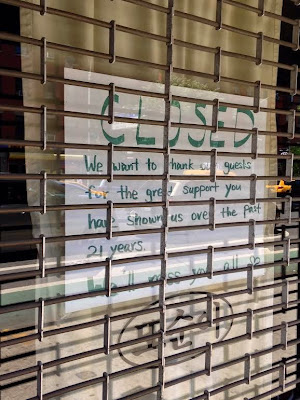 CLOSED
We want to thank our guests
for the great support you
have shown us over the past
21 years.
We'll miss you all so